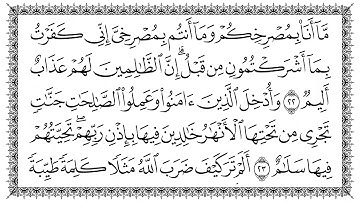 مَّآ أَنَا۠ بِمُصْرِخِكُمْ وَمَآ أَنتُم بِمُصْرِخِىَّ إِنِّى كَفَرْتُ
بِمَآ أَشْرَكْتُمُونِ مِن قَبْلُ ۗ إِنَّ ٱلظَّٰلِمِينَ لَهُمْ عَذَابٌ
أَلِيمٌ ٢٢ وَأُدْخِلَ ٱلَّذِينَ ءَامَنُوا۟ وَعَمِلُوا۟ ٱلصَّٰلِحَٰتِ جَنَّٰتٍ
تَجْرِى مِن تَحْتِهَا ٱلْأَنْهَٰرُ خَٰلِدِينَ فِيهَا بِإِذْنِ رَبِّهِمْ ۖ تَحِيَّتُهُمْ
فِيهَا سَلَٰمٌ ٢٣ أَلَمْ تَرَ كَيْفَ ضَرَبَ ٱللَّهُ مَثَلًا كَلِمَةً طَيِّبَةً